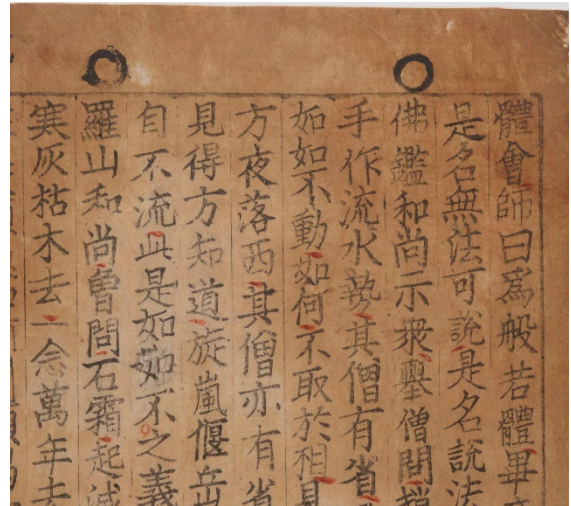 體會師曰爲般若體畢
是名無法可說是名說法
佛鑑和尚示衆舉僧問趙
手作流水勢其僧有省
如如不動如何不取於相見
方夜落西其僧亦有省
見得方知道旋嵐偃岳
自不流此是如如不之義
羅山和尚曾問石霜起滅
寒灰枯木去一念萬年去